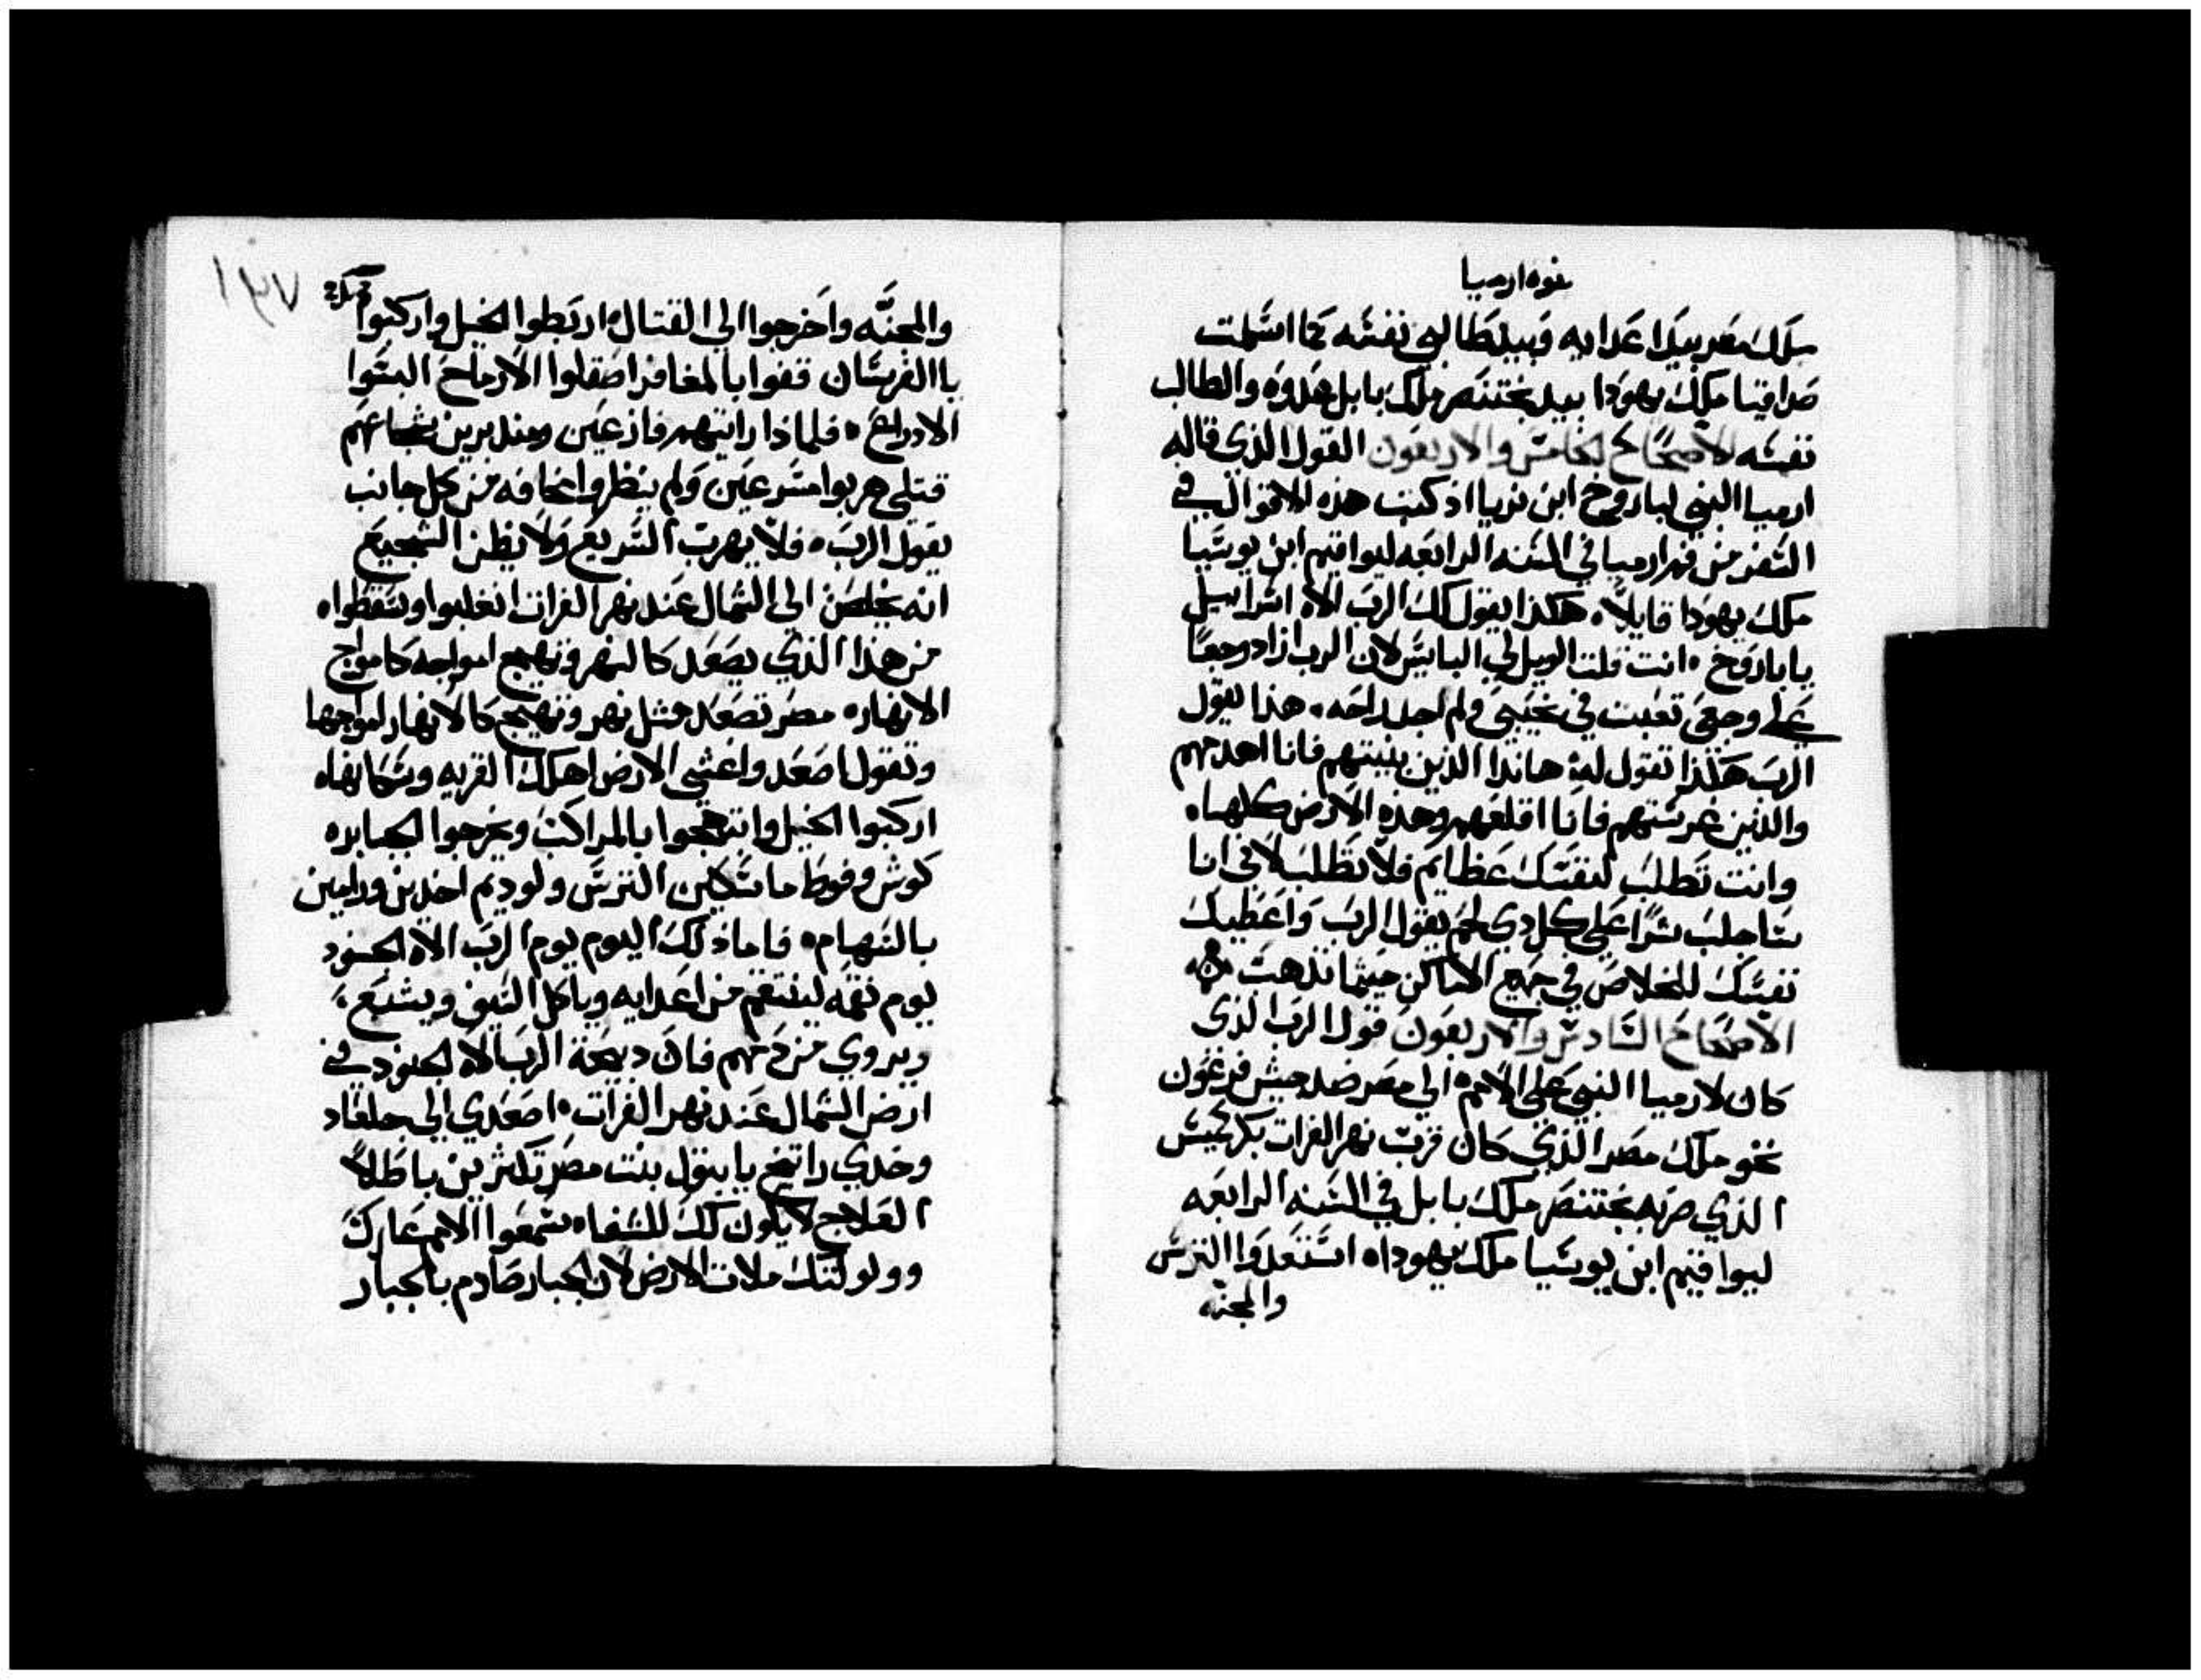 نبوة ارميا
ملك مصر بيد اعدايه وبيد طالبي نفسه كما اسلمت
صداقيا ملك يهودا بيد بختنصر ملك بابل عدوه والطالب
نفسه الاصحاح الخامس والاربعون القول الذي قاله
ارميا النبي لباروخ ابن نريا اذ كتب هذه الاقوال في
السفر من فم ارميا في السنه الرابعه ليواقيم ابن يوسيا
ملك يهودا قايلاً، هكذا يقول لك الرب الاه اسراييل
يا باروخ، انت قلت الويل لي البايس لان الرب ازاد وجعًا
علي وجعي تعبت في نحيبي ولم اجد راحه، هذا يقول
الرب هكذا تقول له، هاندا الذين بنيتهم فانا اهدمهم
والذين غرستهم فانا اقلعهم وهذه الارض كلها،
وانت تطلب لنفسك عظايم فلا تطلب لاني انا
ساجلب شرًا علي كل دي لحم يقول الرب واعطيك
نفسك للخلاص في جميع الاماكن حيثما تذهب
الاصحاح السادس والاربعون قول الرب الذي
كان لارميا النبي علي الامم، الي مصر ضد جيش فرعون
نحو ملك مصر الذي كان قرب نهر الفرات بكركميس
الذي ضربه بختنصر ملك بابل في السنه الرابعه
ليواقيم ابن يوسيا ملك يهودا، استعدوا الترس
والمجنه
١٣٧
والمجنَّه واخرجوا الي القتال، اربطوا الخيل واركبوا
يا الفرسان قفوا بالمغافر اصقلوا الارماح البسوا
الادراع، فلماذا رايتهم فازعين ومدبرين شجعانهم
قتلي هربوا مسرعين ولم ينظروا مخافه من كل جانب
يقول الرب، فلا يهرب السريع ولا يظن الشجيع
انه يخلص الي الشمال عند نهر الفرات انغلبوا وسقطوا،
من هذا الذي يصعد كالنهر وتهيج امواجه كامواج
الانهار، مصر تصعد مثل نهر وتهيج كالانهار امواجها
وتقول اصعد واغشي الارض اهلك القريه وسكانها،
اركبوا الخيل وابتهجوا بالمراكب ويخرجوا الجبابره
كوش وفوط ماسكين الترس ولوديم اخذين ورامين
بالسهام، فاما ذلك اليوم يوم الرب الاه الجنود
يوم نقمه لينتقم من اعدايه وياكل السيف ويشبع،
ويروي من دمهم فان ديحة الرب الاه الجنود في
ارض الشمال عند نهر الفرات، اصعدي الي جلعاد
وخدي راتنج يا بتول بنت مصر تكثرين باطلاً
العلاج لا يكون لك للشفا، سمعوا الامم عارك
وولولتك ملات الارض لان الجبار صادم بالجبار